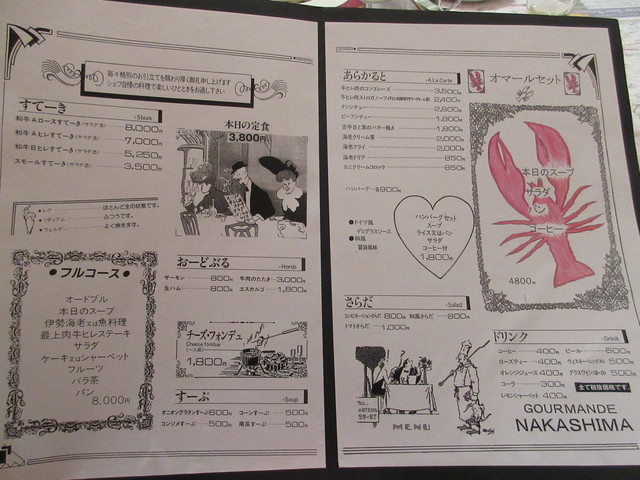 毎々格別のお引立てを賜わり厚く御礼申し上げます
シェフ自慢の料理で楽しいひとときをお過し下さい
すてーき Steak
和牛Aロースすてーき(サラダ添) 8,000円
和牛Aヒレすてーき(サラダ添) 7,000円
和牛Bヒレすてーき(サラダ添) 5,250円
スモールすてーき(サラダ添) 3,500円
●レアー ほとんど生の状態です。
●ミディアム ふつうです。
●ウェルダー よく焼きます。
●フルコース●
オードブル
本日のスープ
伊勢海老又は魚料理
最上肉牛ヒレステーキ
サラダ
ケーキ又はシャーベット
フルーツ
バラ茶
パン
8,000円
本日の定食
3,800円
おーどぶる Horsb
サーモン 800円 牛肉のたたき 3,000円
生ハム 800円 エスカルゴ 1,800円
チーズ・フォンデュ
Cheese fondue
(一人前)
1,800円
すーぷ Soup
オニオングラタンすーぷ 800円 コーンすーぷ 500円
コンソメすーぷ 500円 南瓜すーぷ 500円
あらかると A.La Carte
牛ヒレ肉のコンゴレーズ 3,500円
牛ヒレ肉ストロガノーフ 2,400円
タンシチュー 2,800円
ビーフシチュー 1,800円
舌平目と茸のバター焼き 1,800円
海老クリーム煮 2,000円
海老フライ 2,000円
海老ドリア 850円
カニクリームコロッケ 850円
ハンバーグ 900円
●ドイツ風
デミグラスソース
●和風
醤油風味
ハンバーグセット
スープ
ライス又はパン
サラダ
コーヒー付
1,800円
さらだ Salad
コンビネーションさらだ 800円 和風さらだ 800円
トマトさらだ 1,000円
MENU
オマールセット
本日のスープ
サラダ
パン
コーヒー
4800円
ドリンク Drink
コーヒー 400円 ビール 600円
ローズティー 400円 ウィスキー(シングル) 500円
オレンジジュース 400円 グラスワイン(赤・白) 500円
コーラ 300円 全て税抜価格です。
レモンシャーベット 400円
GOURMANDE
NAKASHIMA